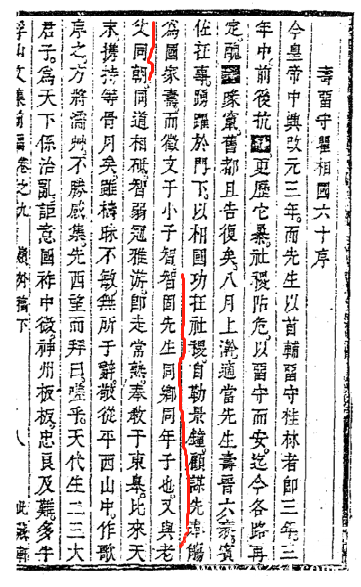 壽留守瞿相國六十序
今皇帝中興改元三年而先生以首輔留守桂林者即三年三
年中前後抗更歷屯社稷阽危以留守而安迄今各路再
定竄舊都且告復矣八月上澣適當先生壽晉六袠賓
佐在事踴躍於門下以相國功在社稷自勒景鐘顧謀先率觴
為國家壽而徵文于小子智智固先生同鄉同年子也又與老
父同朝同道相砥智弱冠雅游即走常熟奉教于東皋比來天
末携持等骨月矣雖檮昧不敏無所于辭敬從平西山中作歌
序之方將濡不勝感集先西望而拜曰嗟乎天代生一二大
君子為天下係治亂詎意國祚中微神州板板忠良及難多乎
浮山文集前編卷之九 嶺外稿下 八 此藏軒